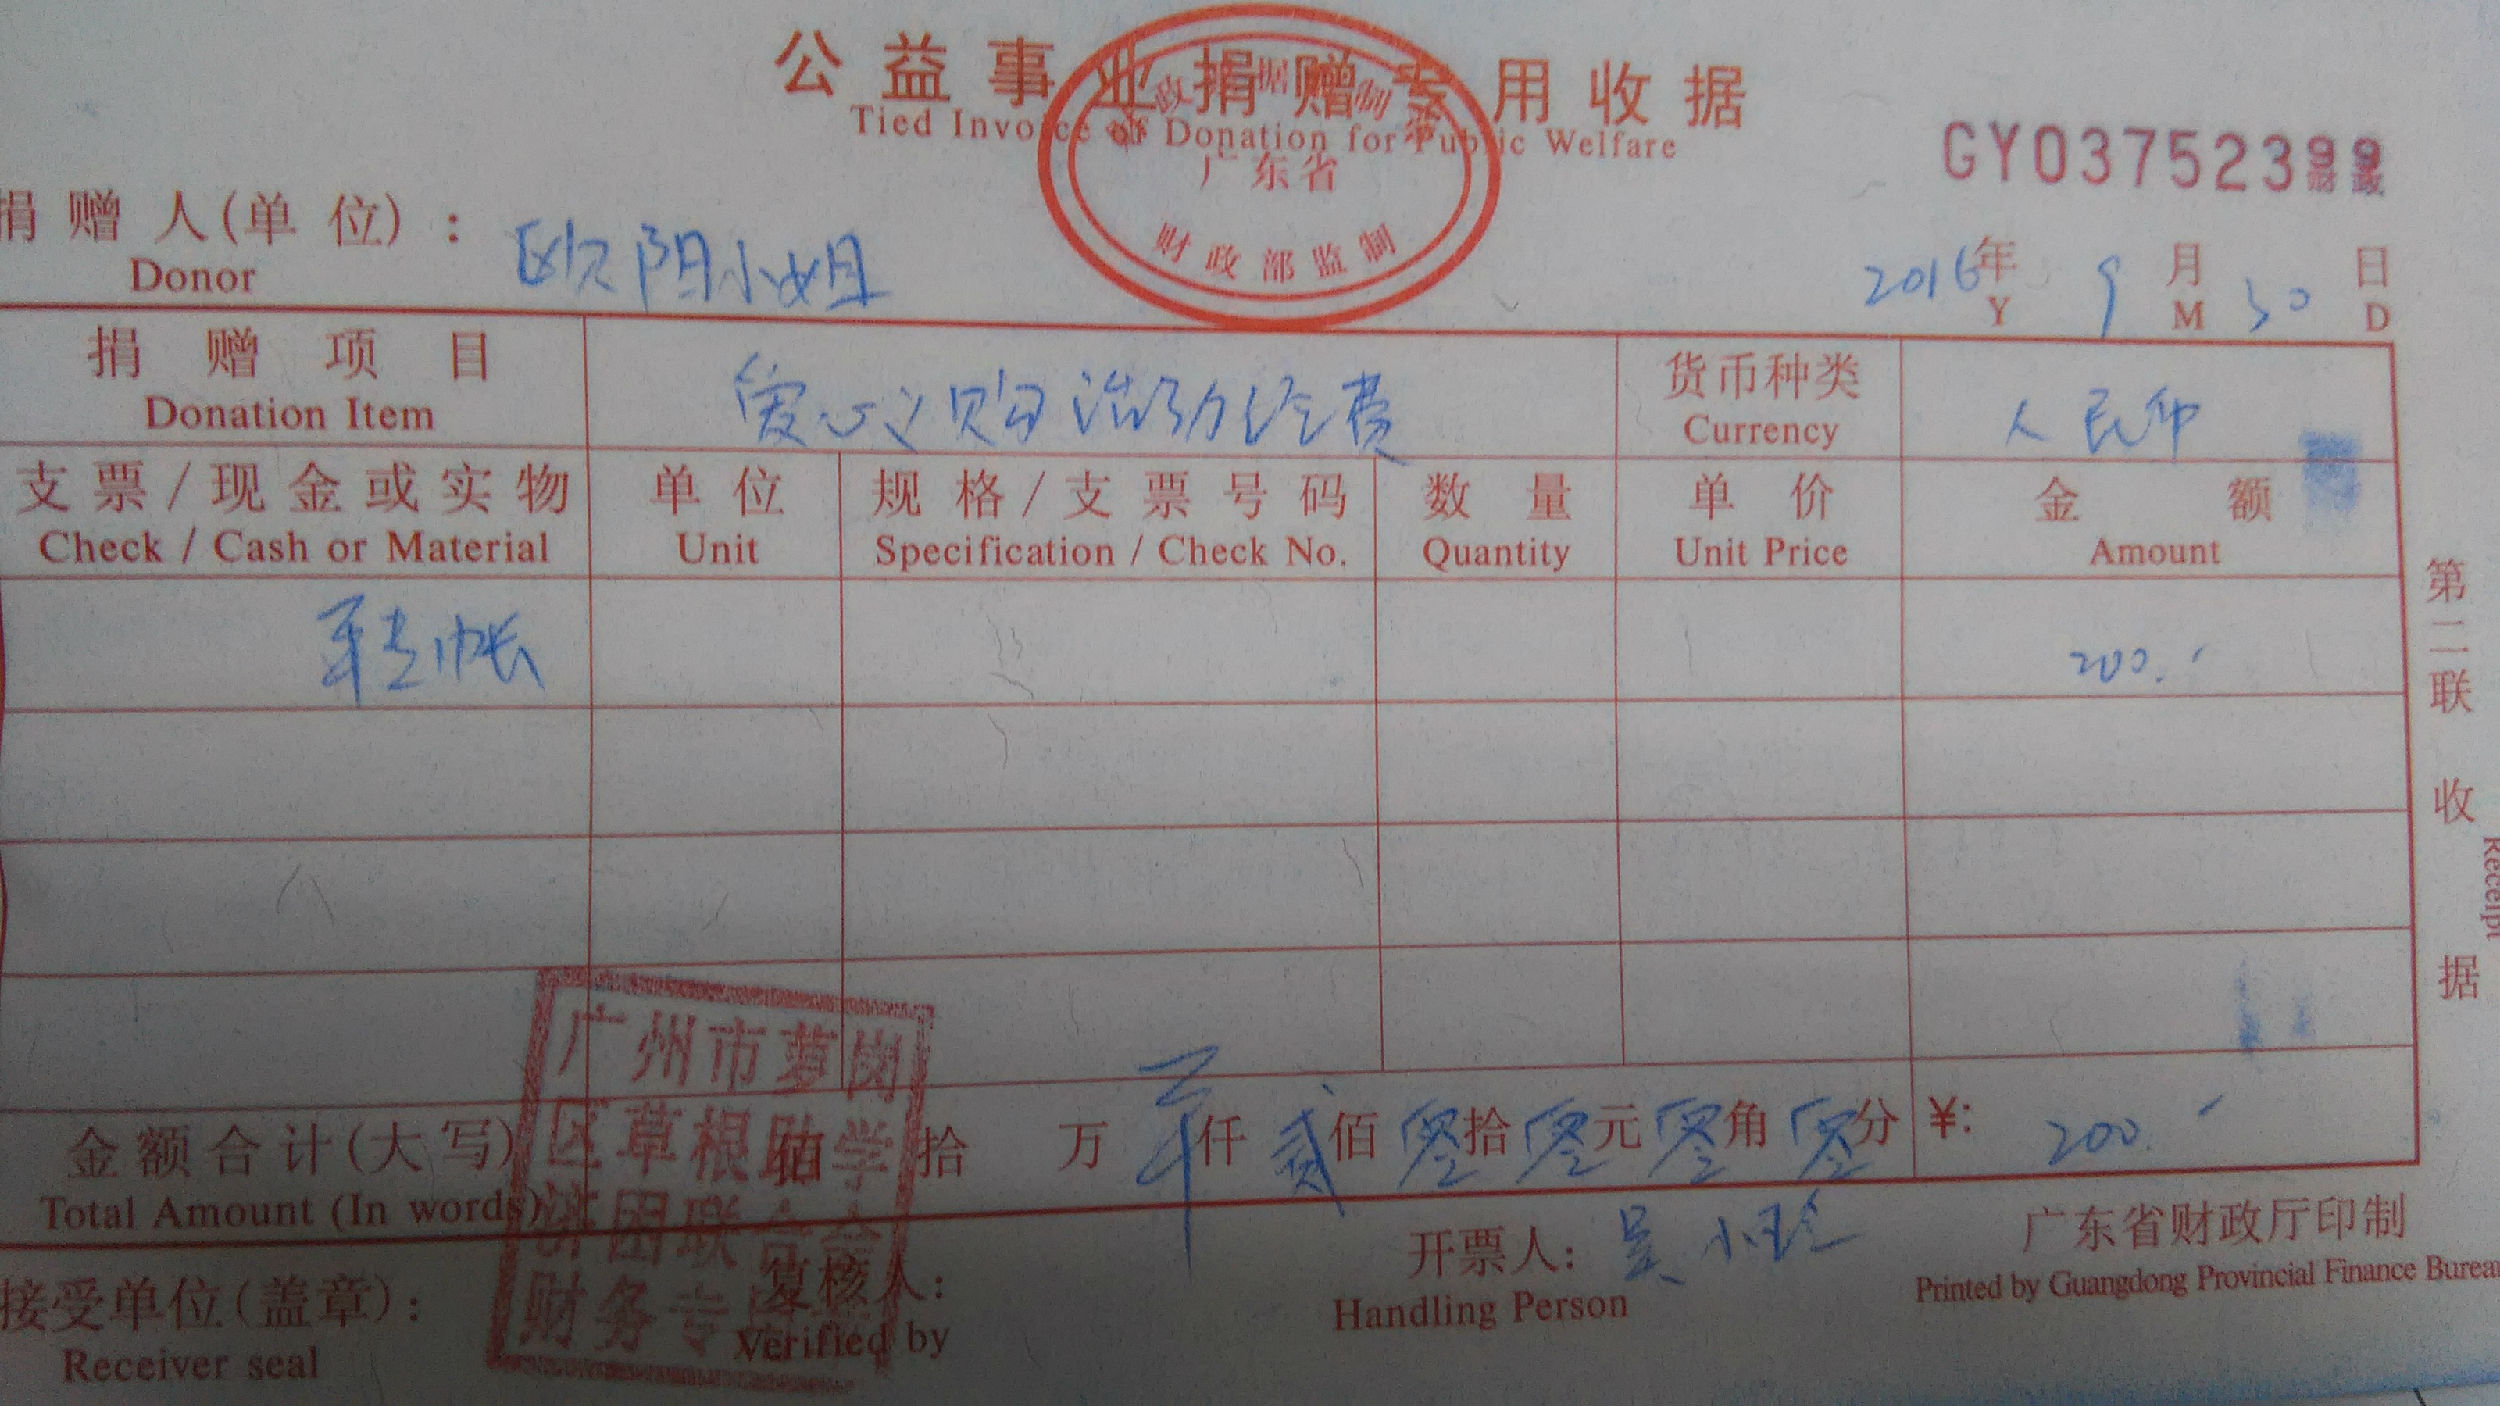 公益事业捐赠专用收据
Tied Invoice of Donation for Public Welfare
广东省
财政部监制
GY03752399
捐赠人(单位): 欧阳小姐
Donor
2016年 9月 30日
Y M D
捐赠项目 爱心义购活动经费 货币种类 人民币
Donation Item Currency
支票/现金或实物 单位 规格/支票号码 数量 单价 金额
Check / Cash or Material Unit Specification / Check No. Quantity Unit Price Amount
转帐 200.-
金额合计(大写) 佰 拾 万 仟 贰佰 零拾 零元 零角 零分 ¥: 200.-
Total Amount (In words)
接受单位(盖章): 复核人: 开票人: 吴小玲 广东省财政厅印制
Receiver seal Verified by Handling Person Printed by Guangdong Provincial Finance Burea
广州市萝岗
区草根助学
济困联合会
财务专用章
第二联 收据
Receipt